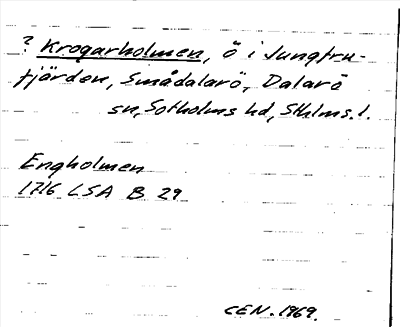 ? Krogarholmen, ö i Jungfru-
fjärden, Smådalarö, Dalarö
sn, Sotholms hd, Sthlms. l.
Engholmen
1716 LSA B 29
CEN. 1969.